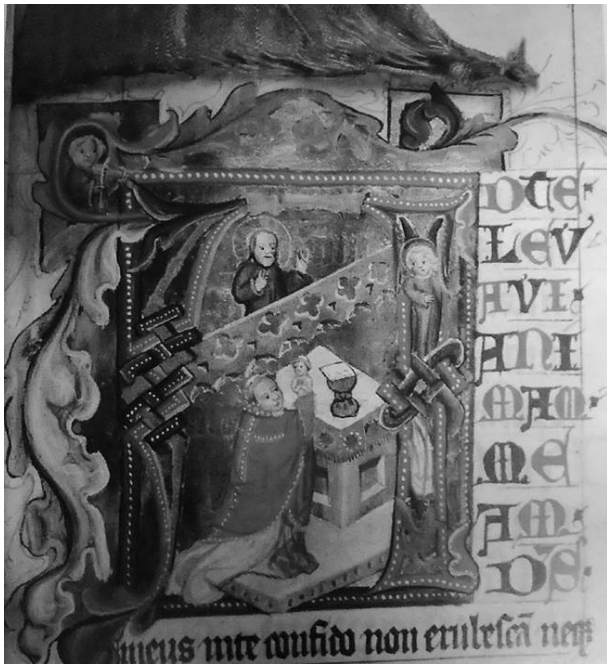 ADTE·
LEV
AVI·
ANI
MAM·
ME
AM·
DS̄·
meus inte confido non erubescā neqꝫ